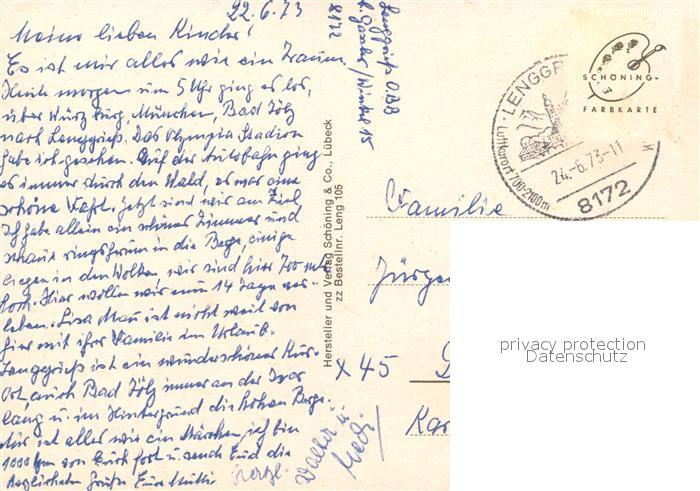 22.6.73
Meine lieben Kinder!
Es ist mir alles wie ein Traum.
Heute morgen um 5 Uhr ging es los,
über Würzburg, München, Bad Tölz
nach Lenggrieß. Das Olympia Stadion
habe ich gesehen. Auf der Autobahn ging
es immer durch den Wald, es war eine
schöne Fahrt. Jetzt sind wir am Ziel
Ich habe allein ein schönes Zimmer und
schaue ringsherum in die Berge, einige
liegen in den Wolken, wir sind hier 700 mtr
hoch. Hier wollen wir nun 14 Tage ver-
leben. Lisa Mau ist nicht weit von
hier mit ihrer Familie im Urlaub.
Lenggrieß ist ein wunderschöner Kur-
Ort, auch Bad Tölz immer an der Isar
lang u. im Hintergrund die hohen Berge.
Mir ist alles wie ein Märchen, ich bin
1000 km von Euch fort u. sende Euch die
herzlichsten Grüße Eure Mutti
Herzl.
8172
Lenggrieß OBB
15
Hersteller und Verlag Schöning & Co., Lübeck
zz Bestellnr. Leng 105
SCHÖNING-
FARBKARTE
LENGGR
Luftkurort 700-2100m
24.-6.73-11
8172
Familie
Jürgen
X45
Kar
privacy protection
Datenschutz